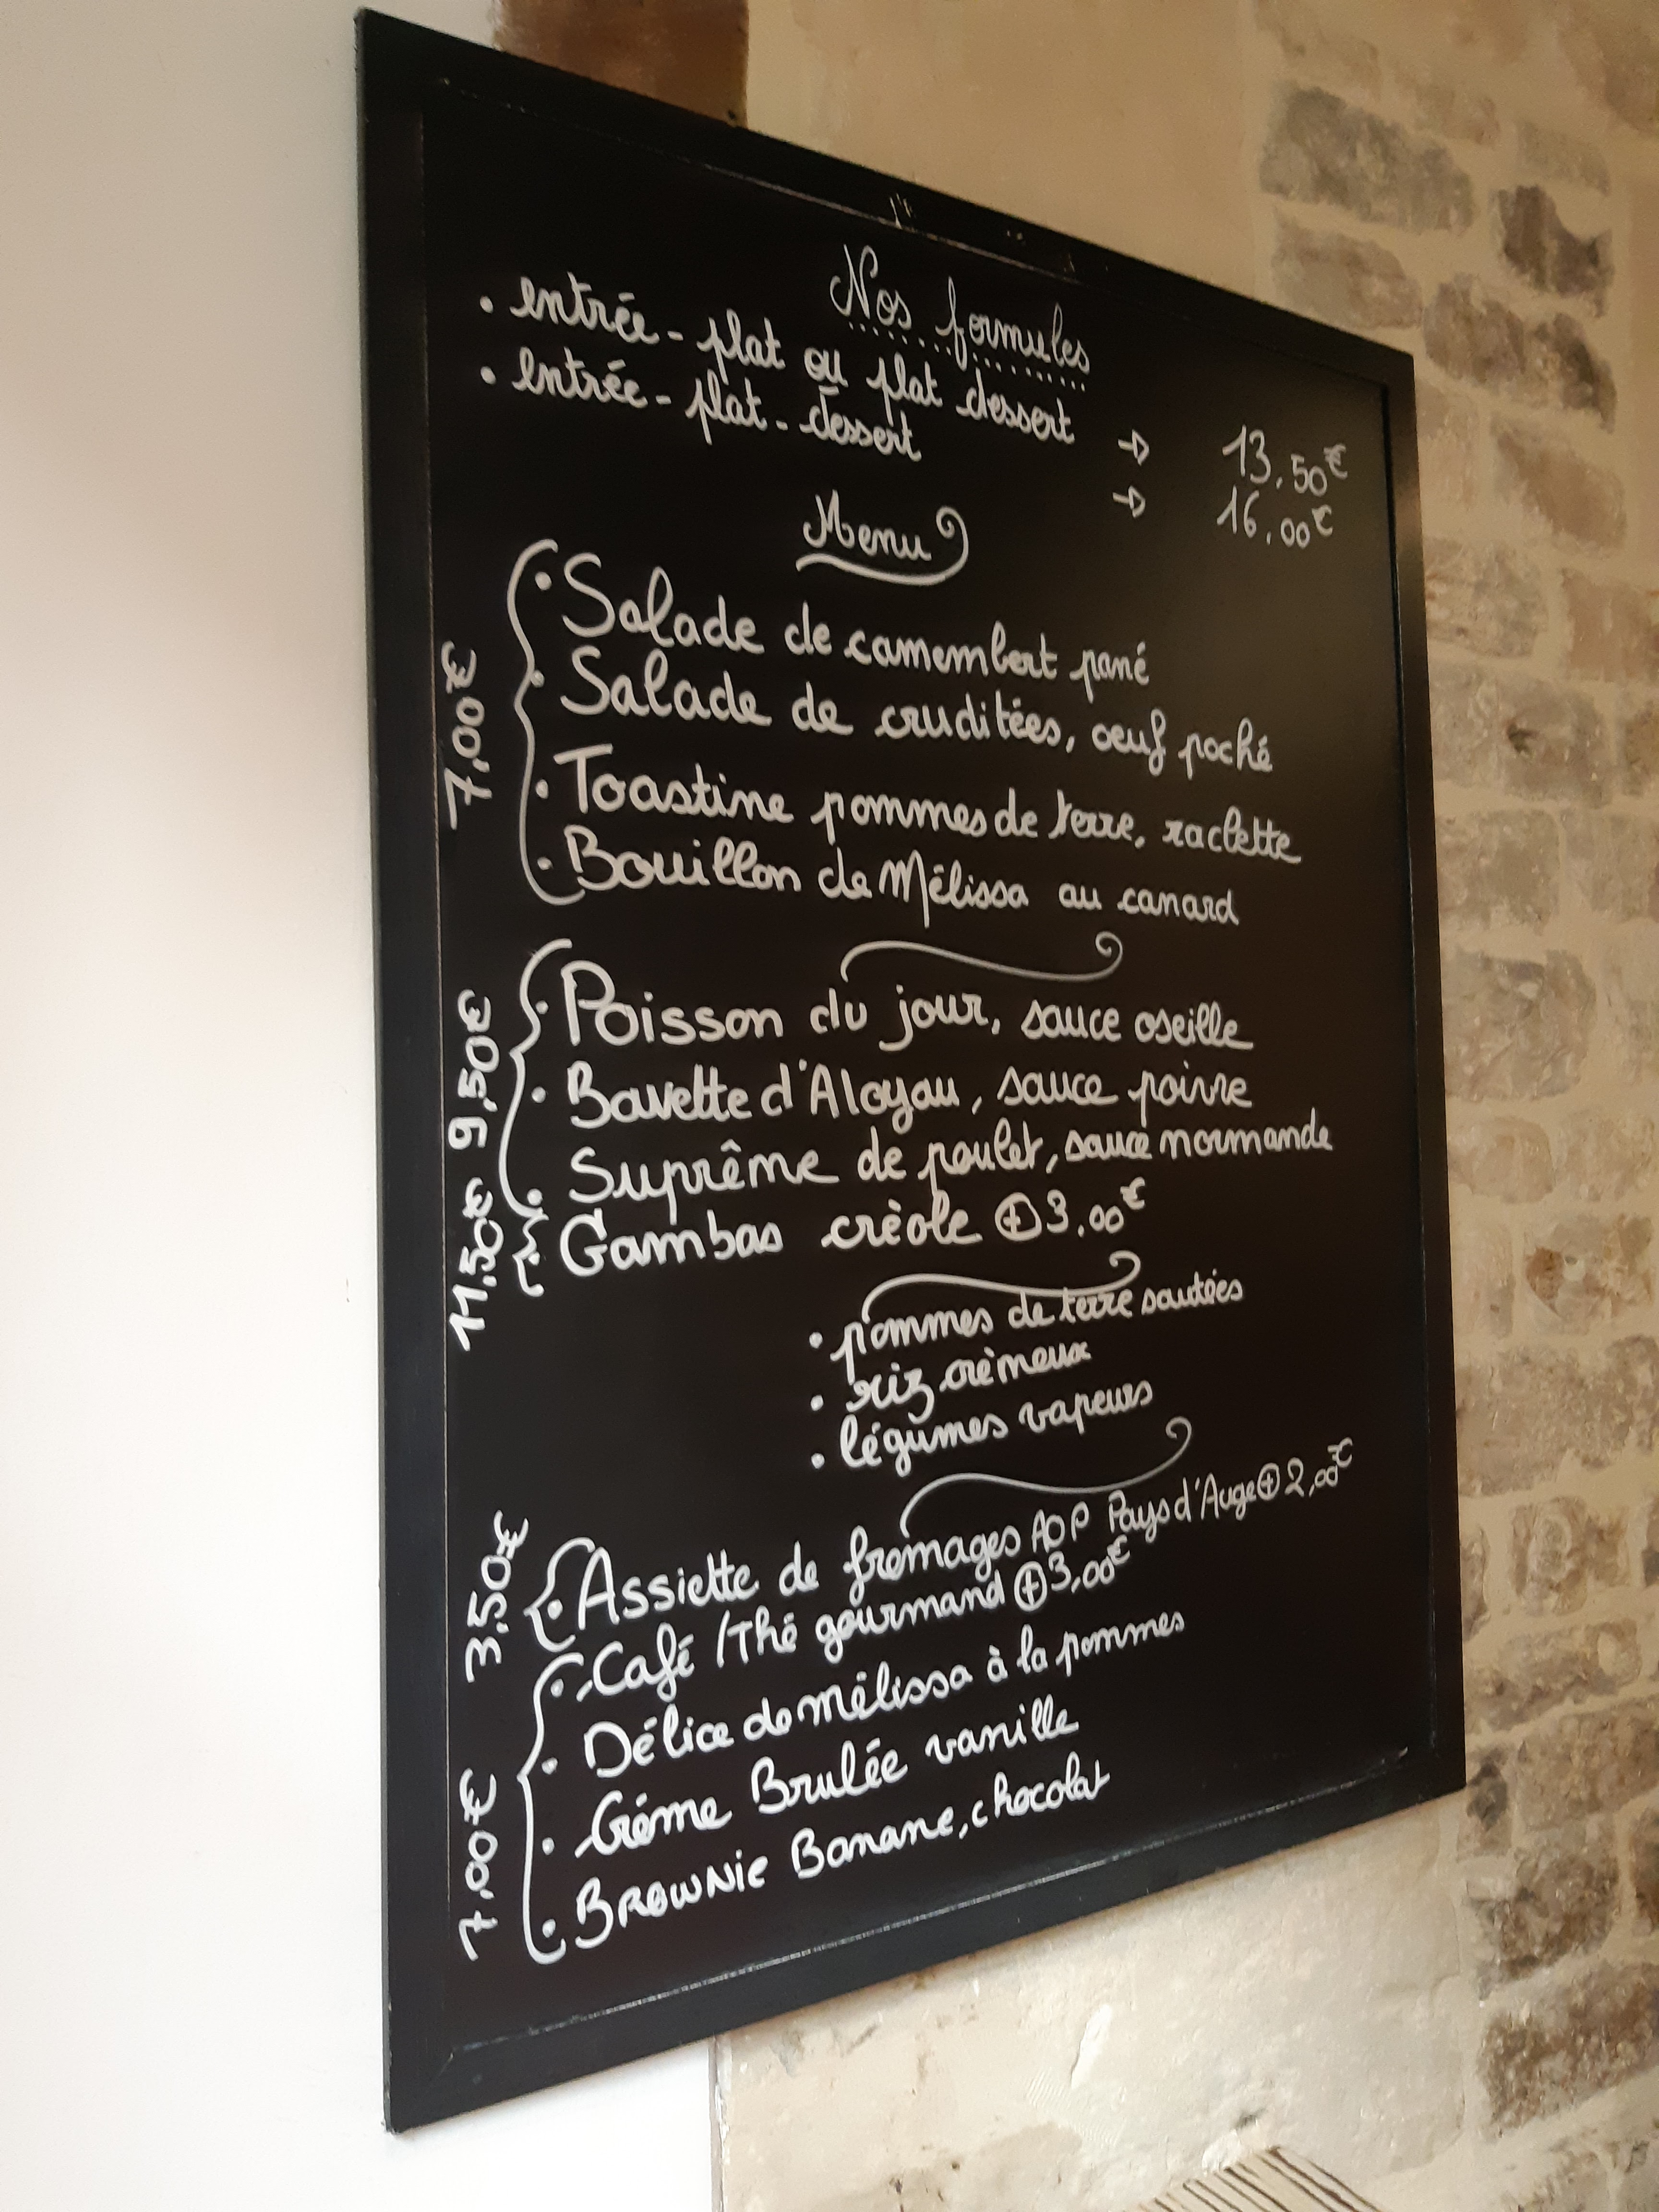 Nos formules
• entrée - plat ou plat dessert → 13,50€
• entrée - plat - dessert → 16,00€
Menu
7,00€
• Salade de camembert pané
• Salade de cruditées, oeuf poché
• Toastine pommes de terre, raclette
• Bouillon de Mélissa au canard
9,50€
• Poisson du jour, sauce oseille
• Bavette d'Aloyau, sauce poivre
Suprême de poulet, sauce normande
11,50€
• Gambas crèole ⊕ 3,00€
• pommes de terre sautées
• riz crèmeux
• légumes vapeurs
3,50€
• Assiette de fromages AOP Pays d'Auge ⊕ 2,00€
7,00€
• Café / Thé gourmand ⊕ 3,00€
• Délice de mélissa à la pommes
• Créme Brulée vanille
• Brownie Banane, chocolat